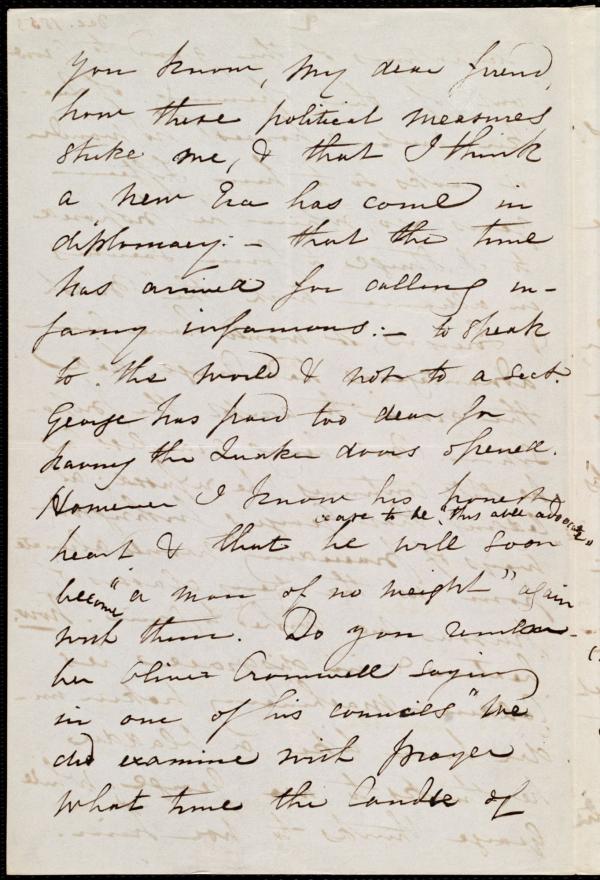 You know, my dear friend,
how these political measures
strike me, & that I think
a new Era has come in
diplomacy: – that the time
has arrived for calling in-
famy infamous: – to speak
to the world & not to a sect.
George has paid too dear for
having the Quaker doors opened.
However I know his honest
heart & that he will soon
cease to be "this able advocate"
become "a man of no weight" again
with them. Do you remem-
ber Oliver Cromwell saying
in one of his councils "We
did examine with prayer
what time the Candle of